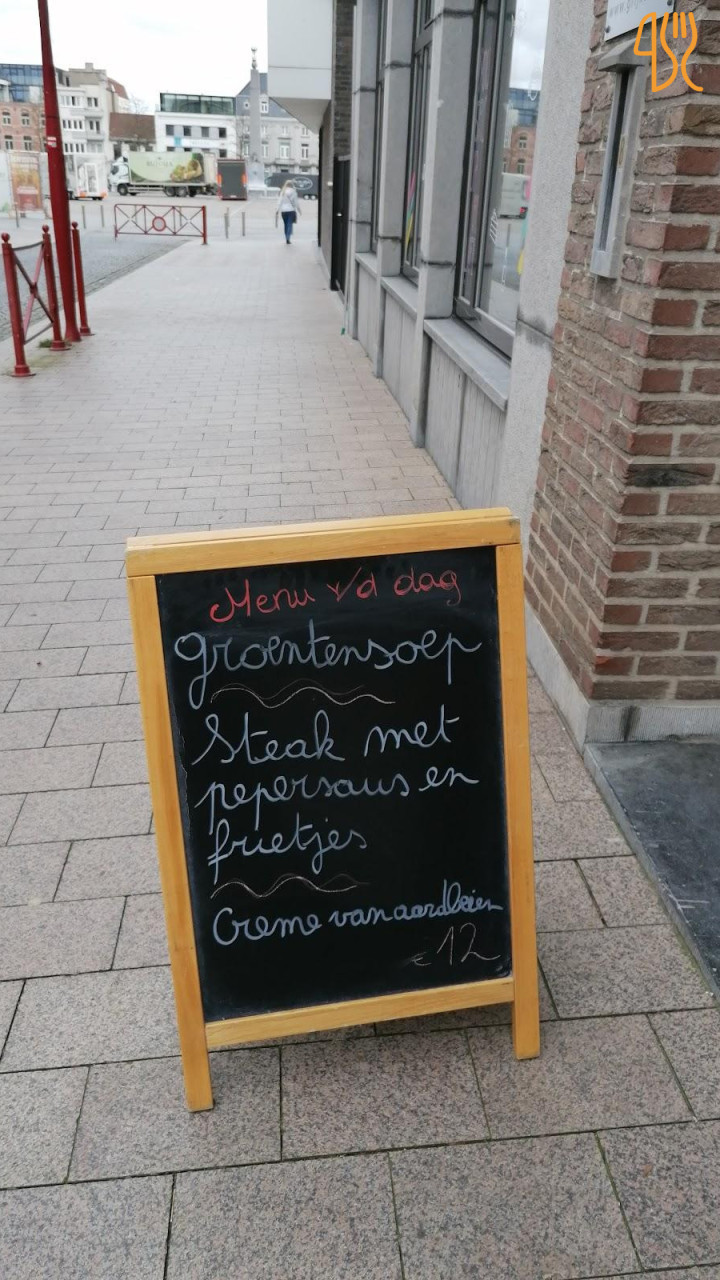 Menu v/d dag
groentensoep
Steak met
pepersaus en
frietjes
Creme van aardbeien
€12